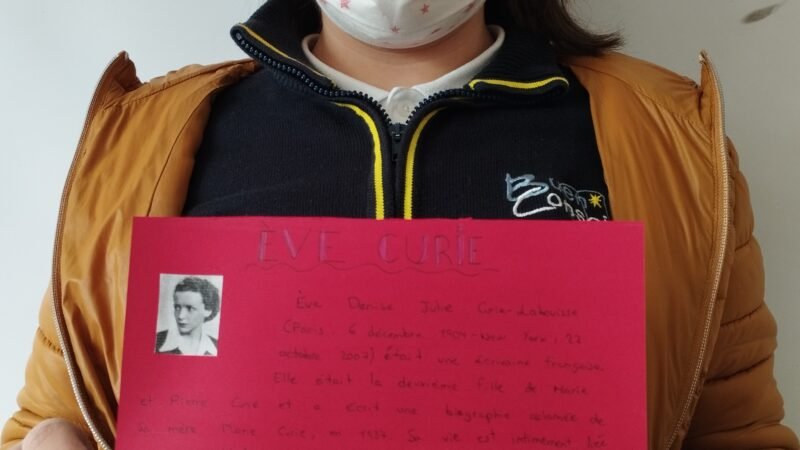 Buen
Conse
ÈVE CURIE
Ève Denise Julie Curie-Labouisse
(Paris, 6 décembre 1904-New York, 22
octobre 2007) était une écrivaine française.
Elle était la deuxième fille de Marie
et Pierre Curie et a écrit une biographie célèbre de
sa mère, Marie Curie, en 1937. Sa vie est intimement liée